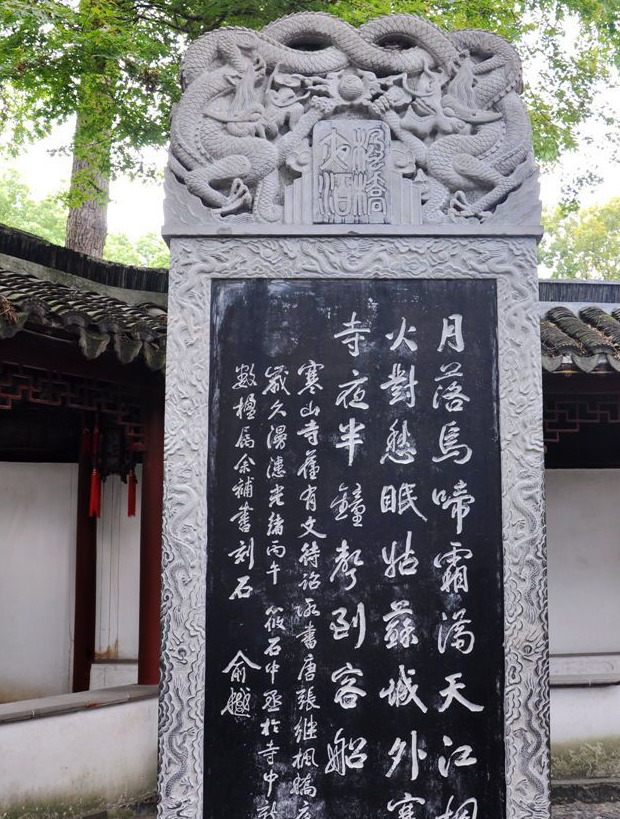 楓橋
夜泊
月落烏啼霜滿天江楓
火對愁眠姑蘇城外寒
寺夜半鐘聲到客船
寒山寺舊有文待詔所書唐張繼楓橋夜
歲久漫漶光緒丙午筱石中丞於寺中新
數楹屬余補書刻石
俞樾